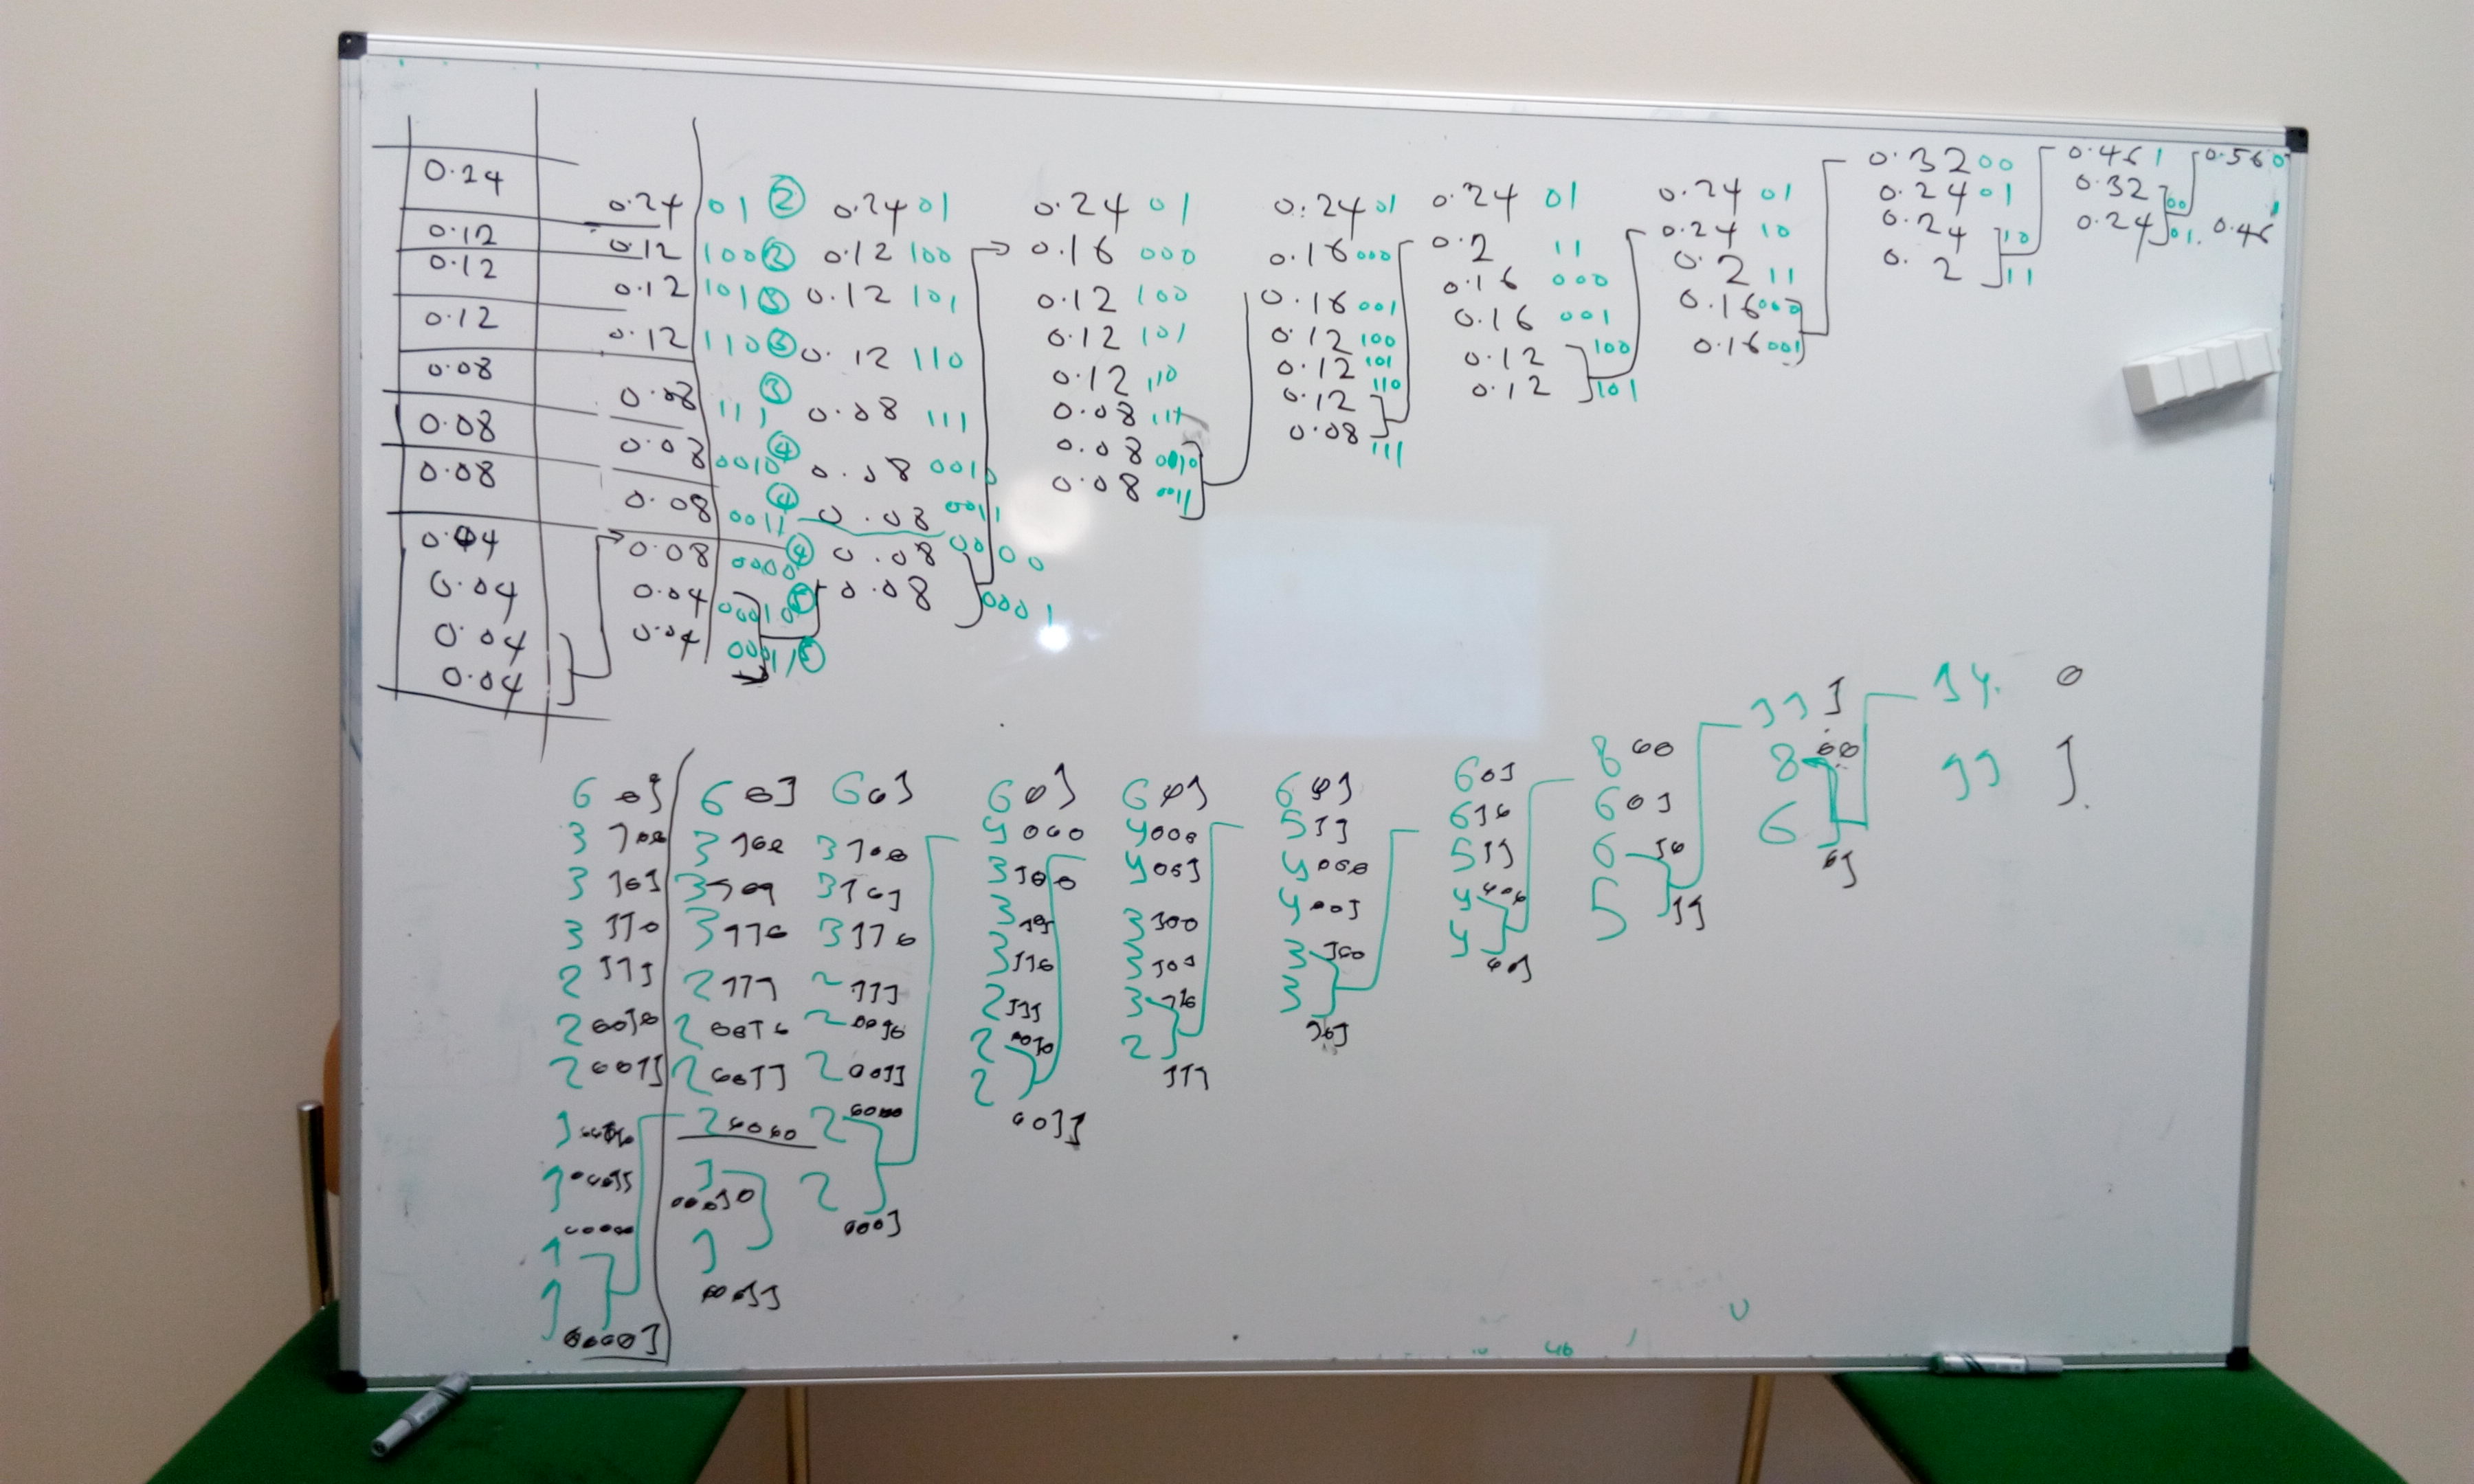 0.24
0.12
0.12
0.12
0.08
0.08
0.08
0.04
0.04
0.04
0.04
0.24 01 ②
0.12 100 ③
0.12 101 ③
0.12 110 ③
0.08 111 ③
0.08 0010 ④
0.08 0011 ④
0.08 0000 ④
0.04 00010 ⑤
0.04 00011 ⑤
0.24 01
0.12 100
0.12 101
0.12 110
0.08 111
0.08 0010
0.08 0011
0.08 0000
0.08 0001
0.24 01
0.16 000
0.12 100
0.12 101
0.12 110
0.08 111
0.08 0010
0.08 0011
0.24 01
0.16 000
0.16 001
0.12 100
0.12 101
0.12 110
0.08 111
0.24 01
0.2 11
0.16 000
0.16 001
0.12 100
0.12 101
0.24 01
0.24 10
0.2 11
0.16 000
0.16 001
0.32 00
0.24 01
0.24 10
0.2 11
0.4 1
0.32 00
0.24 01
0.56 0
0.46
6 01
3 100
3 101
3 110
2 111
2 0010
2 0011
1
1 00011
1 00000
1
00001
6 01
3 100
3
3 110
2 111
2 0010
2 0011
2 0000
1
00010
1
00011
6 01
3 100
3 101
3 110
2 111
2 0010
2 0011
2 0000
2
0001
6 01
4 000
3 100
3 101
3 110
2 111
2 0010
2
0011
6 01
4 000
4 001
3 100
3 101
3 110
2
111
6 01
5 11
4 000
4 001
3 100
3
101
6 01
6 10
5 11
4 000
4
001
8 00
6 01
6 10
5
11
11 1
8 00
6
01
14 0
11 1
46